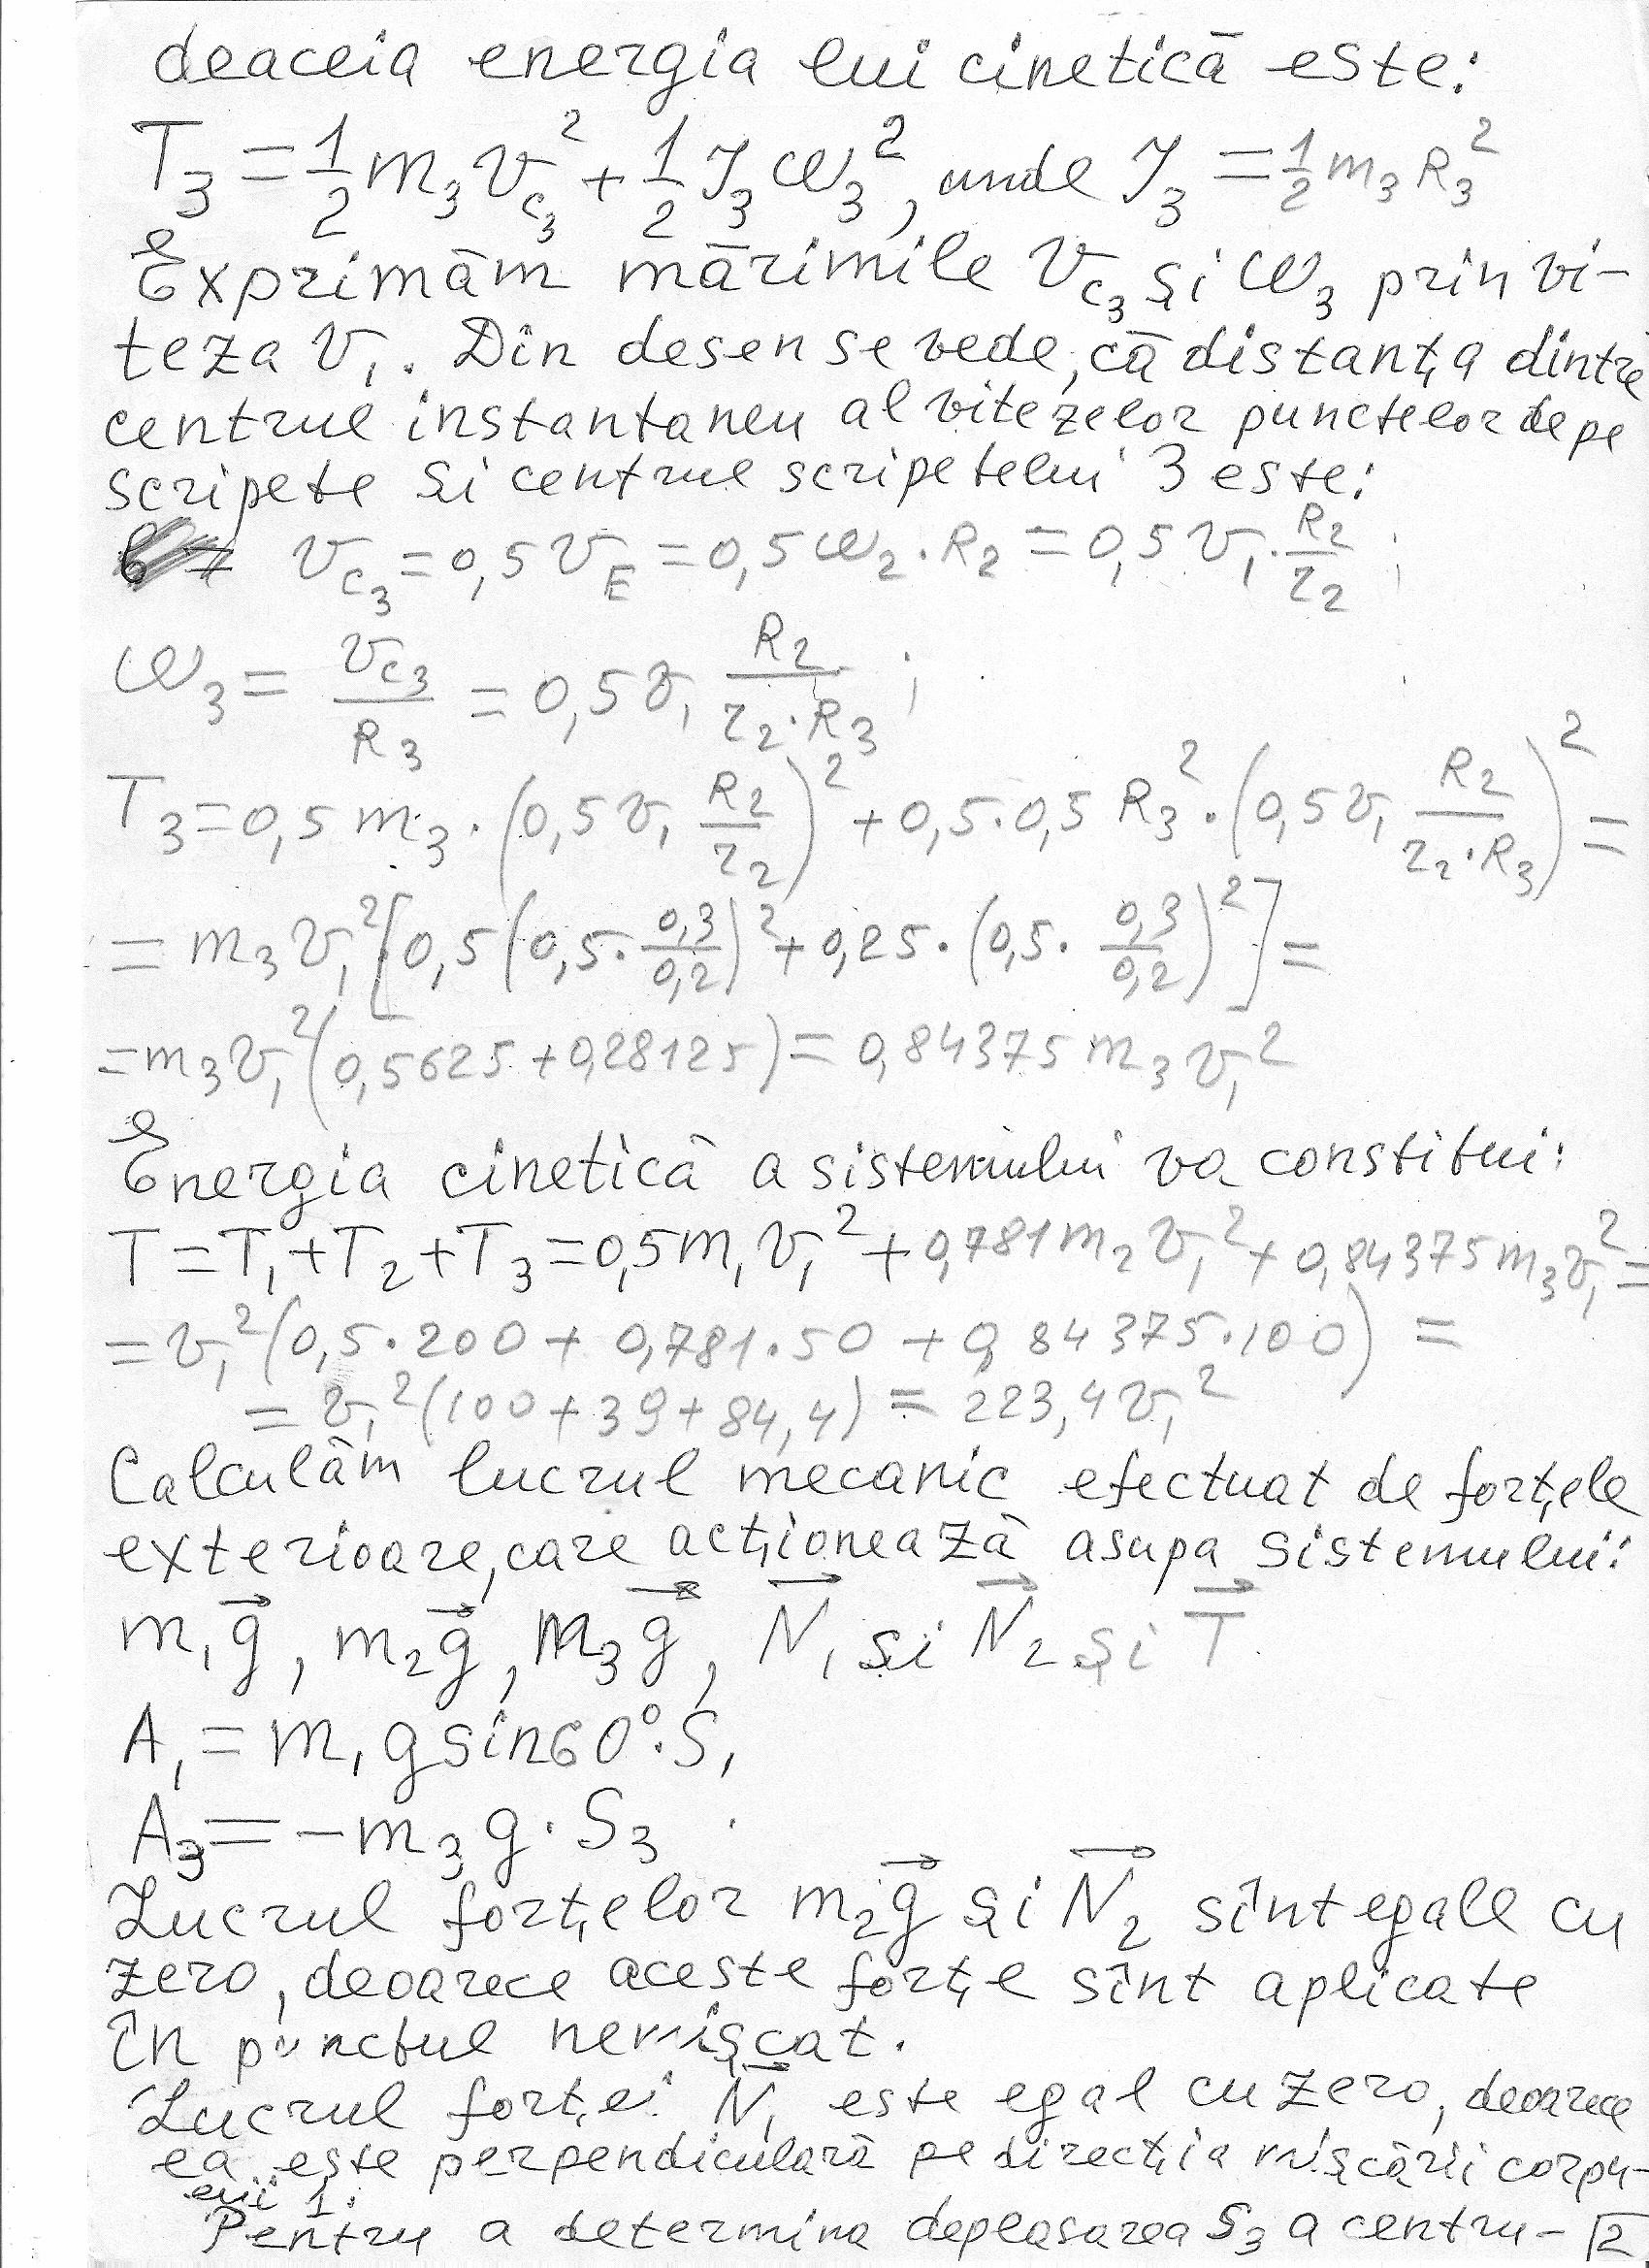 deaceia energia lui cinetică este:
T₃ = 1/2 m₃ v_c₃² + 1/2 J₃ ω₃², unde J₃ = 1/2 m₃ R₃²
Exprimăm mărimile v_c₃ și ω₃ prin vi-
teza v₁. Din desen se vede, că distanța dintre
centrul instantaneu al vitezelor punctelor de pe
scripete și centrul scripetelui 3 este:
v_c₃ = 0,5 v_E = 0,5 ω₂ · R₂ = 0,5 v₁ · R₂/r₂ ;
ω₃ = v_c₃/R₃ = 0,5 v₁ R₂/(r₂ · R₃) ;
T₃ = 0,5 m₃ · (0,5 v₁ R₂/r₂)² + 0,5 · 0,5 R₃² · (0,5 v₁ R₂/(r₂ · R₃))² =
= m₃ v₁² [0,5 (0,5 · 0,3/0,2)² + 0,25 · (0,5 · 0,3/0,2)²] =
= m₃ v₁² (0,5625 + 0,28125) = 0,84375 m₃ v₁²
Energia cinetică a sistemului va constitui:
T = T₁ + T₂ + T₃ = 0,5 m₁ v₁² + 0,781 m₂ v₁² + 0,84375 m₃ v₁² =
= v₁² (0,5 · 200 + 0,781 · 50 + 0,84375 · 100) =
= v₁² (100 + 39 + 84,4) = 223,4 v₁²
Calculăm lucrul mecanic efectuat de forțele
exterioare, care acționează asupa sistemului:
m₁g⃗, m₂g⃗, m₃g⃗, N⃗₁ și N⃗₂ și T⃗.
A₁ = m₁ g sin60° · S₁
A₃ = − m₃ g · S₃
Lucrul forțelor m₂g⃗ și N⃗₂ sînt egale cu
zero, deoarece aceste forțe sînt aplicate
în punctul nemișcat.
Lucrul forței N⃗₁ este egal cu zero, deoarece
ea este perpendiculară pe direcția mișcării corpu-
lui 1.
Pentru a determina deplasarea S₃ a centru-
2